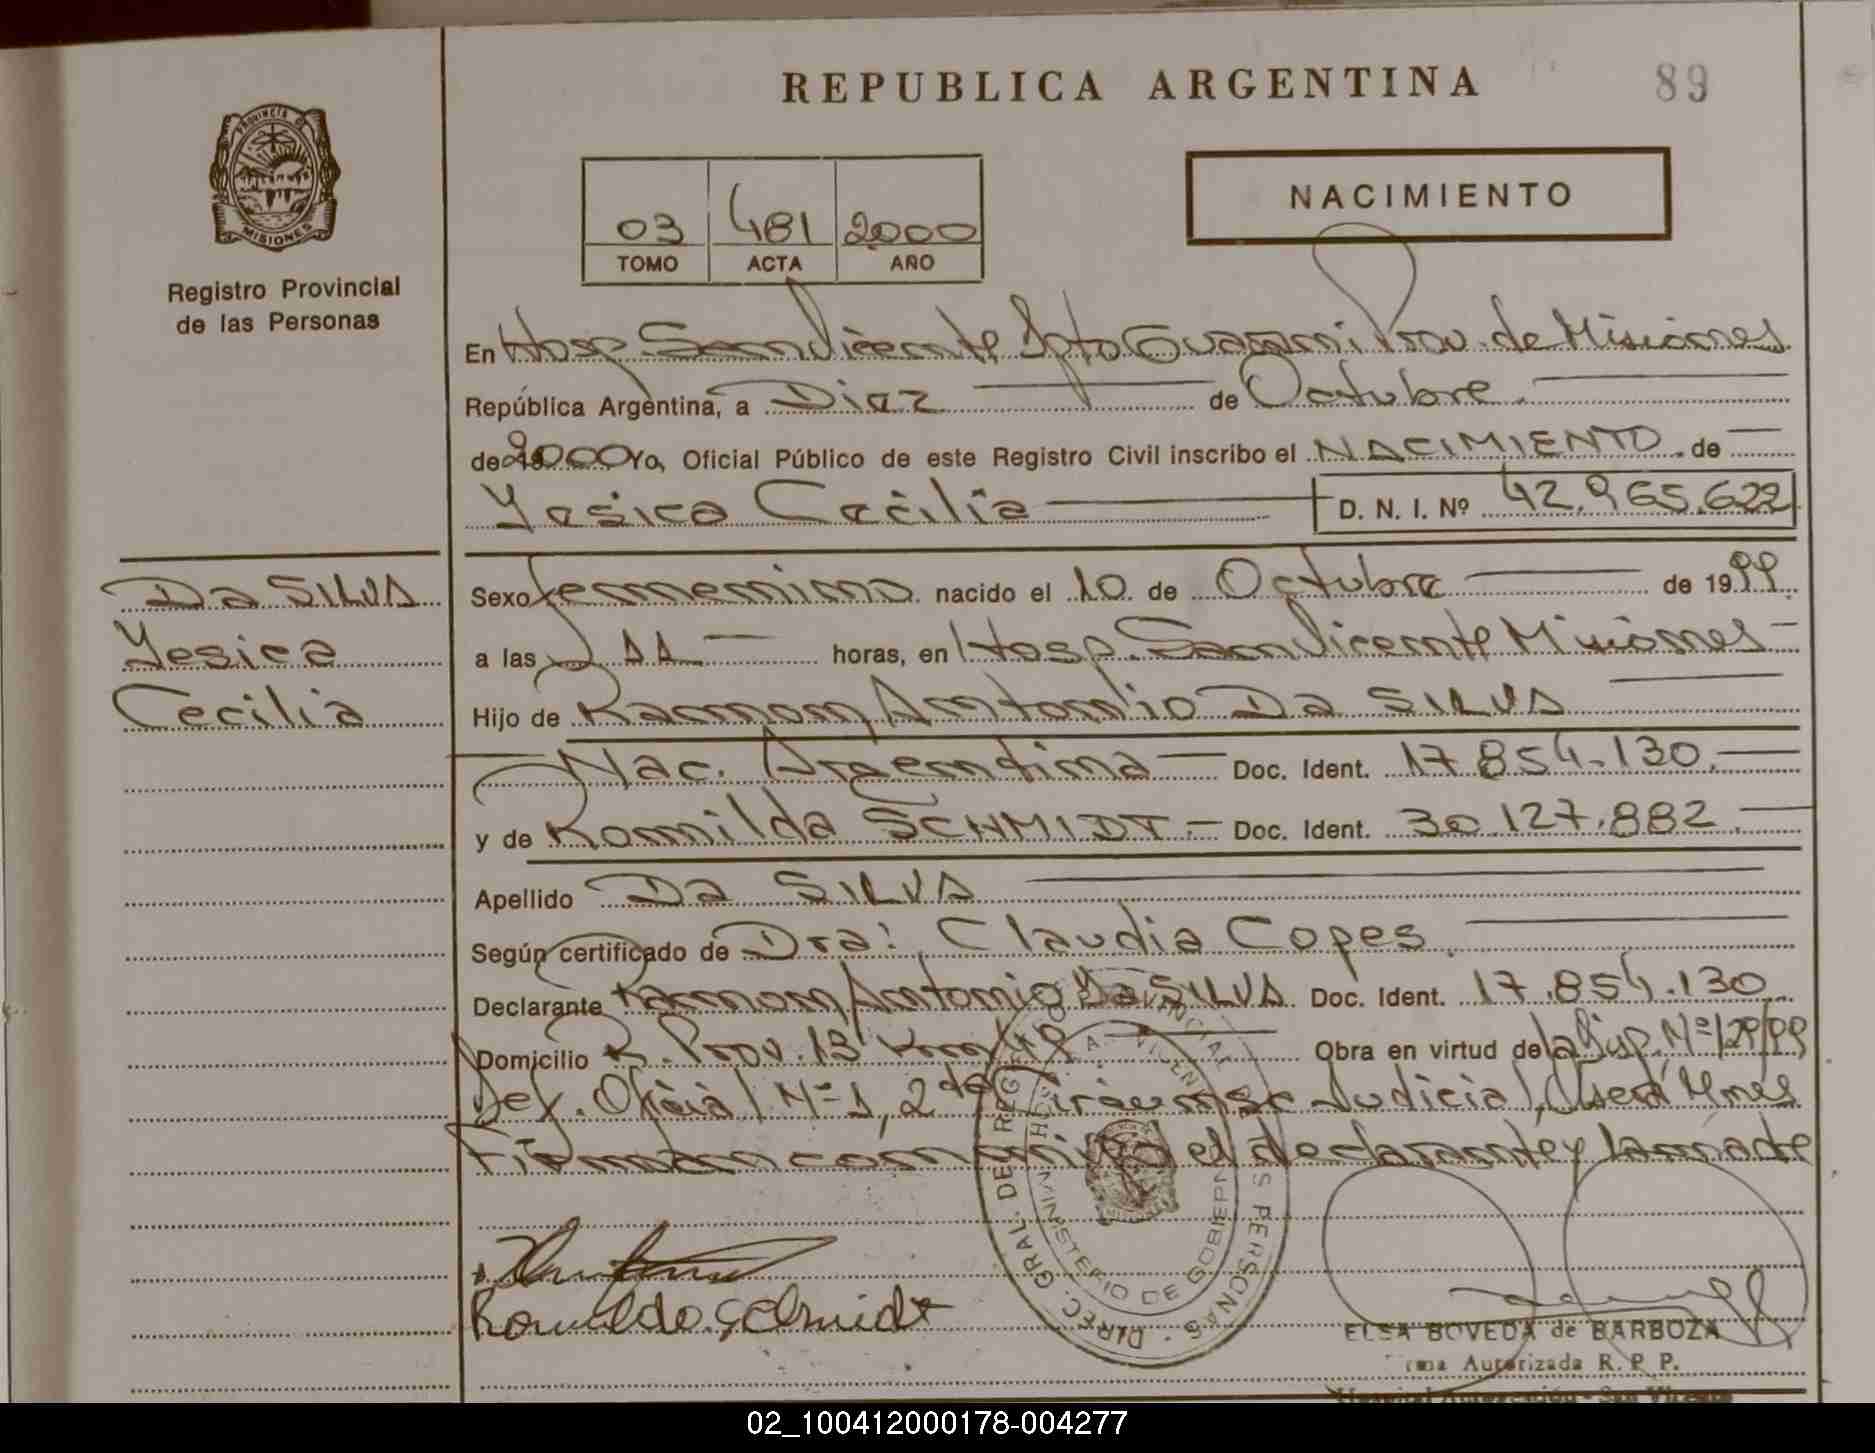 REPUBLICA ARGENTINA
89
PROVINCIA DE
MISIONES
Registro Provincial
de las Personas
NACIMIENTO
03 481 2000
TOMO ACTA AÑO
En Hosp. San Vicente Dpto Guarani Prov. de Misiones
República Argentina, a Diez de Octubre
de 2000 Yo, Oficial Público de este Registro Civil inscribo el NACIMIENTO de
Yesica Cecilia D. N. I. Nº 42.965.622
Da SILVA
Yesica
Cecilia
Sexo femenino nacido el 10 de Octubre de 1999
a las 11 horas, en Hosp. San Vicente Misiones
Hijo de Ramon Antonio Da SILVA
Nac. Argentina Doc. Ident. 17.854.130
y de Romilda SCHMIDT.- Doc. Ident. 30.127.882
Apellido Da SILVA
Según certificado de Dra: Claudia Copes
Declarante Ramon Antonio Da SILVA Doc. Ident. 17.854.130
Domicilio R. Prov. 13 Km Obra en virtud de la Disp. Nº
Def. Oficial Nº 1, 2da Circunsc Judicial, Oberá Mnes
Firman conmigo el declarante y la madre
DIREC. GRAL. DE REG. PROVINCIAL PERSONAS
MINISTERIO DE GOBIERN
Schmidt
ELSA BOVEDA de BARBOZA
Autorizada R. P. P.
02_100412000178-004277